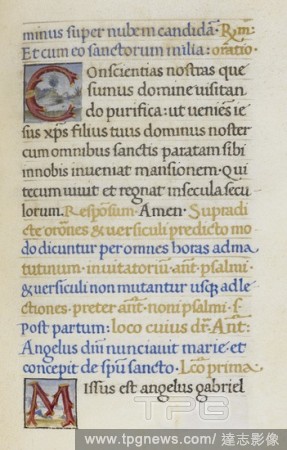 minus super nubem candidā. Rm̄:
Et cum eo sanctorum milia: oratio.
Conscientias nostras que
sumus domine visitan
do purifica: ut veniēs ie
sus xp̄s filius tuus dominus noster
cum omnibus sanctis paratam sibi
in nobis inveniat mansionem. Qui
tecum vivit et regnat in secula secu
lorum. Respōsum. Amen. Supradi
cte orōnes & versiculi predicto mo
do dicuntur per omnes horas ad ma
tutinum. invitatoriū. ant̄. psalmi.
& versiculi non mutantur usq; ad le
ctiones. preter ant̄. noni psalmi. &
Post partum: loco cuius dr̄. Ant̄:
Angelus dn̄i nunciavit marie. et
concepit de spū sancto. Lc̄o prima.
Missus est angelus gabriel
TPG
www.tpgnews.com / 達志影像